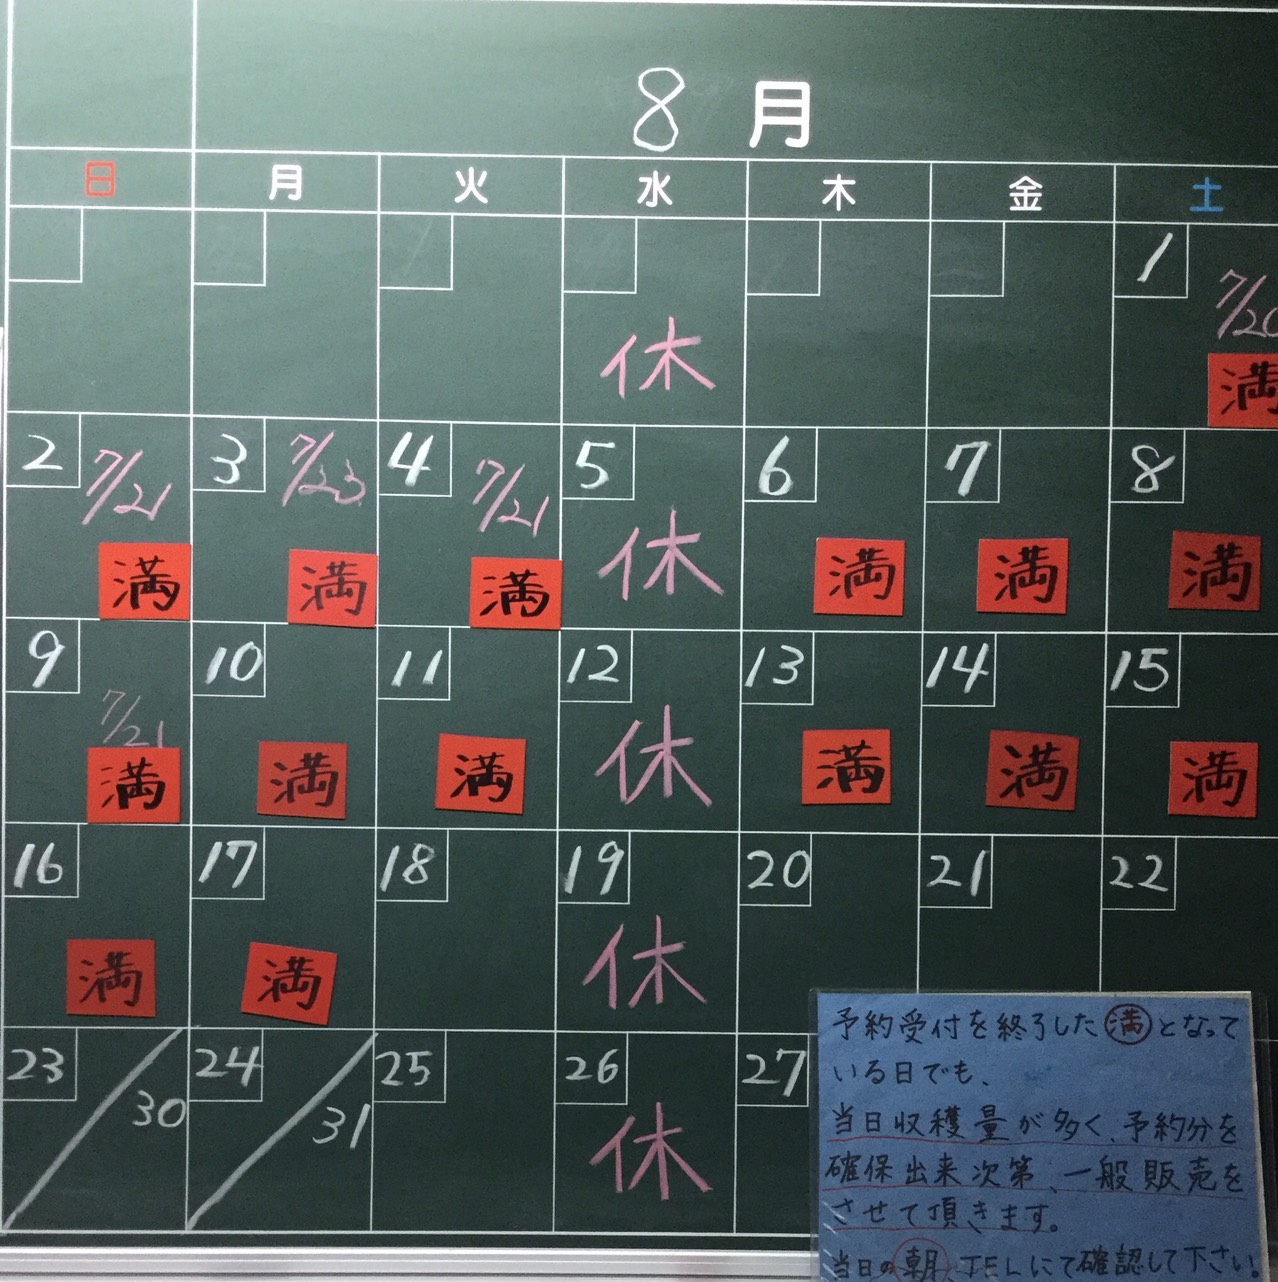 8月
日 月 火 水 木 金 土
1
7/20
休 満
2 7/21 3 7/23 4 7/21 5 6 7 8
満 満 満 休 満 満 満
9 10 11 12 13 14 15
7/21
満 満 満 休 満 満 満
16 17 18 19 20 21 22
満 満 休
23 30 24 31 25 26 27
休
予約受付を終了した満となって
いる日でも、
当日収穫量が多く、予約分を
確保出来次第、一般販売を
させて頂きます。
当日の朝TELにて確認して下さい。